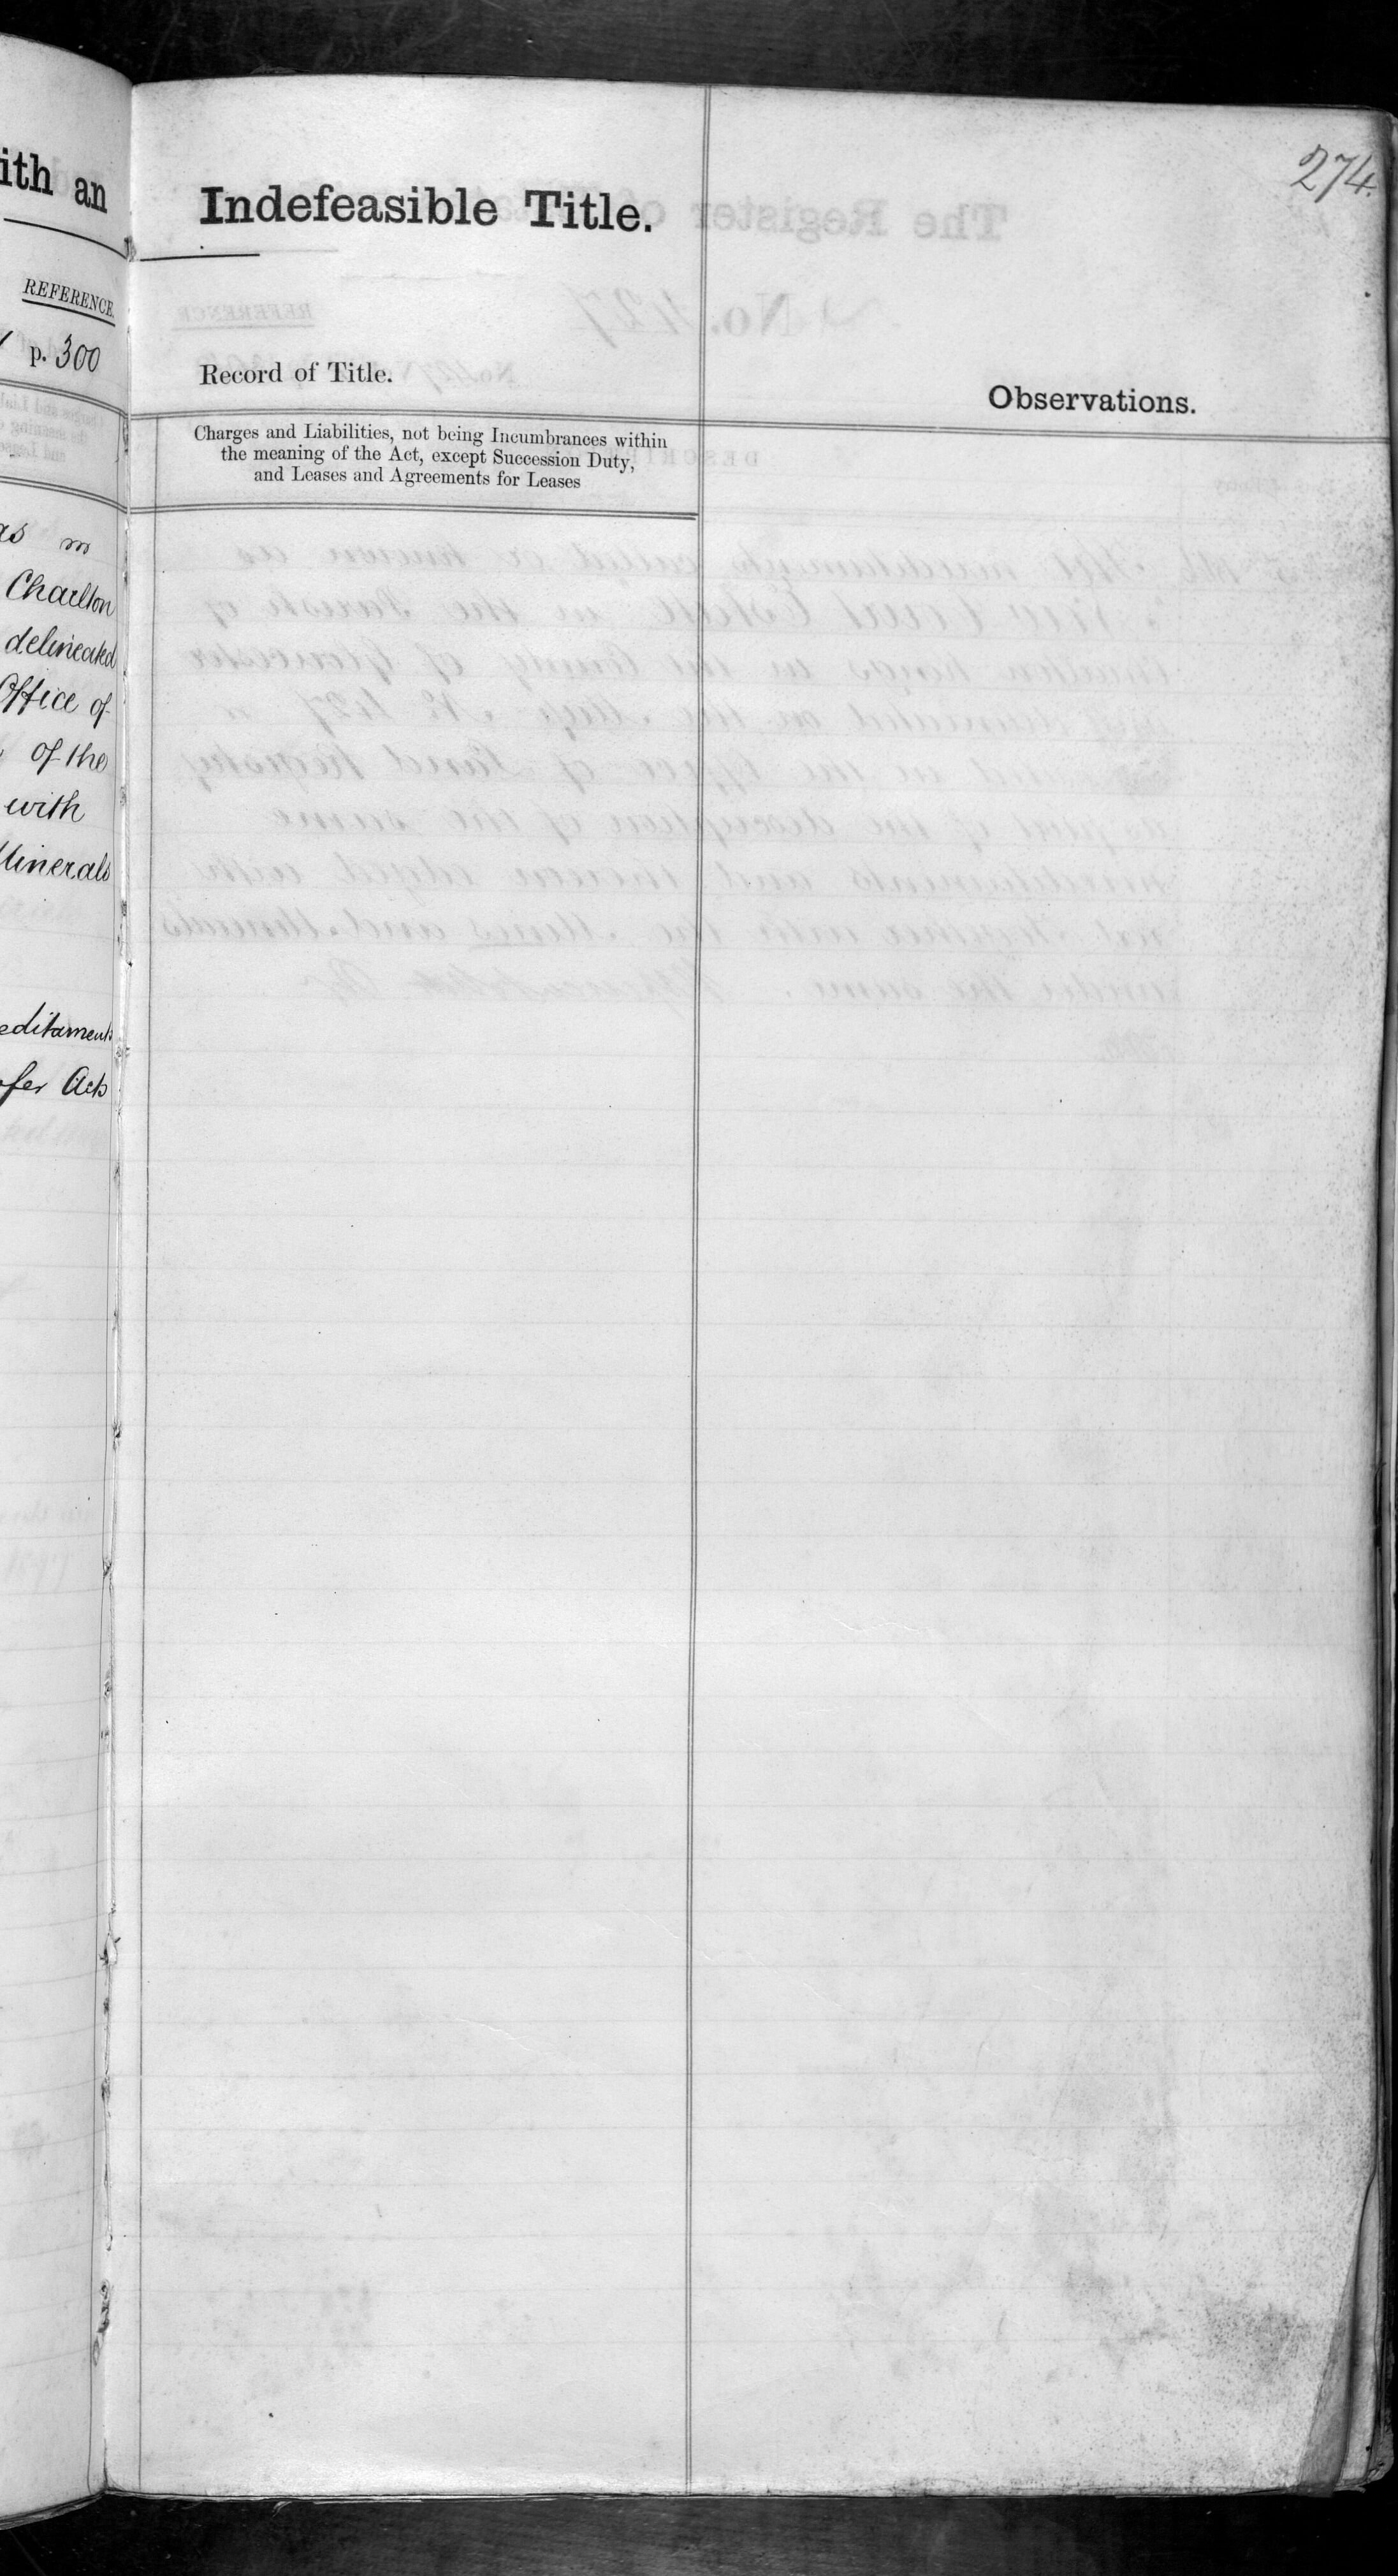 ith an
REFERENCE.
p. 300
as in
Charlton
delineated
Office of
of the
with
Minerals
editaments
sfer Acts
274.
Indefeasible Title.
Record of Title.
Observations.
Charges and Liabilities, not being Incumbrances within
the meaning of the Act, except Succession Duty,
and Leases and Agreements for Leases